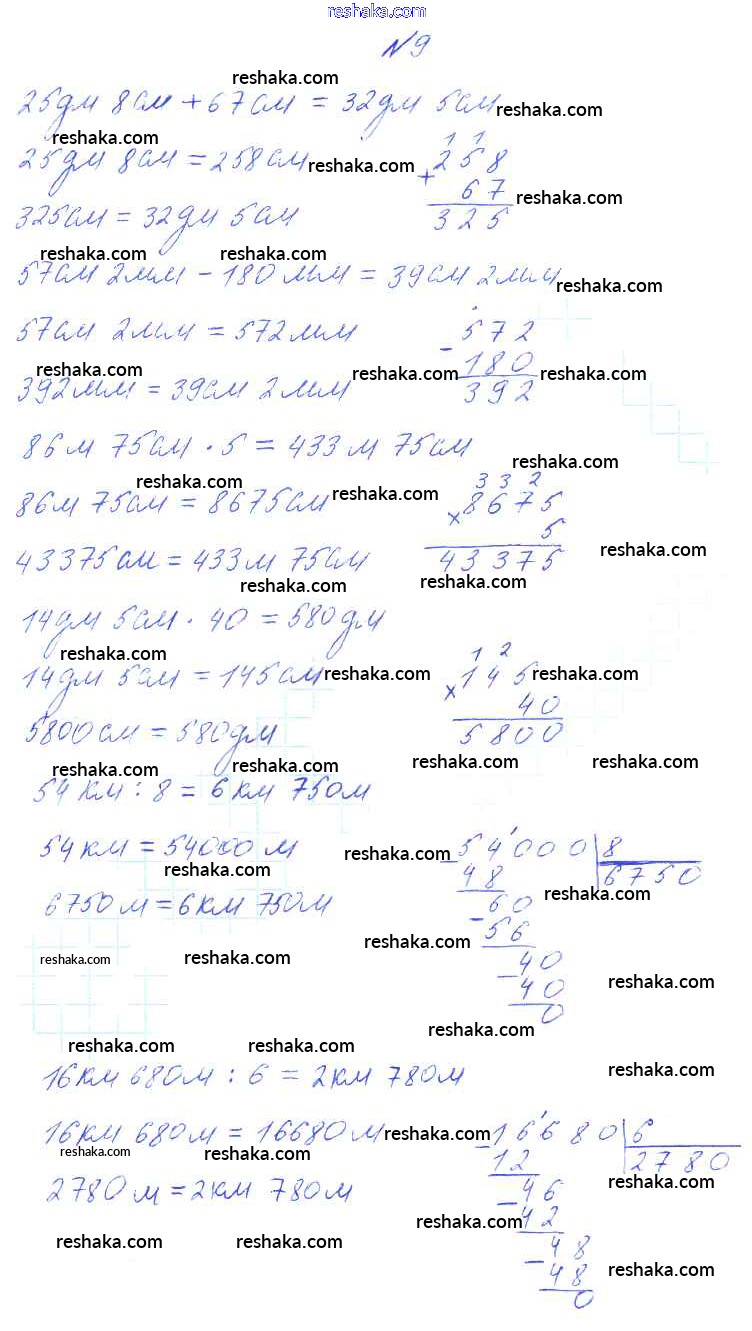 reshaka.com
№9
reshaka.com
25дм 8см + 67см = 32дм 5см reshaka.com
reshaka.com
25дм 8см = 258см reshaka.com
1 1
258
+ 67 reshaka.com
325
325см = 32дм 5см
reshaka.com reshaka.com
57см 2мм - 180мм = 39см 2мм reshaka.com
57см 2мм = 572мм
572
- 180
392
reshaka.com reshaka.com reshaka.com
392мм = 39см 2мм
86м 75см · 5 = 433м 75см
reshaka.com
reshaka.com reshaka.com
86м 75см = 8675см
3 3 2
8675
× 5
43375
reshaka.com
43375см = 433м 75см
reshaka.com reshaka.com
14дм 5см · 40 = 580дм
reshaka.com
14дм 5см = 145см reshaka.com
1 2
145 reshaka.com
× 40
5800
5800см = 580дм
reshaka.com reshaka.com reshaka.com reshaka.com
54км : 8 = 6км 750м
54км = 54000м reshaka.com
reshaka.com
54000 8
- 48 6750
60 reshaka.com
- 56
40
- 40
0
6750м = 6км 750м
reshaka.com reshaka.com reshaka.com
reshaka.com
reshaka.com
reshaka.com reshaka.com reshaka.com
16км 680м : 6 = 2км 780м
16км 680м = 16680м reshaka.com
reshaka.com reshaka.com
16680 6
- 12 2780
46 reshaka.com
- 42
48
- 48
0
2780м = 2км 780м
reshaka.com
reshaka.com reshaka.com reshaka.com